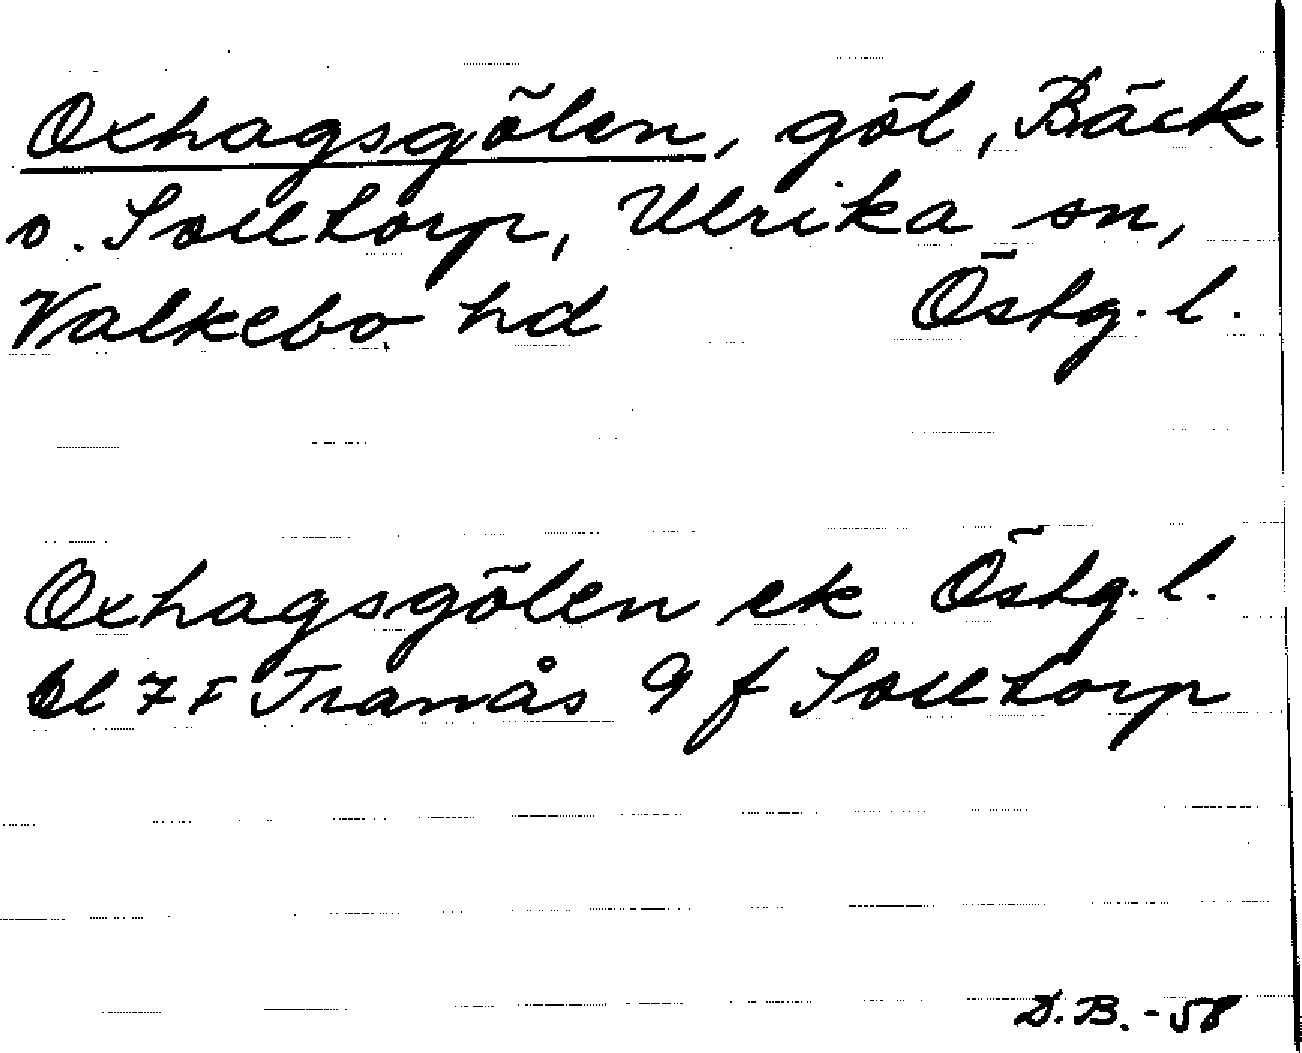 Oxhagsgölen, göl, Bäck
o. Solltorp, Ulrika sn,
Valkebo hd Östg. l.
Oxhagsgölen ek Östg. l.
bl 7 F Tranås 9 f Solltorp
D.B. - 58